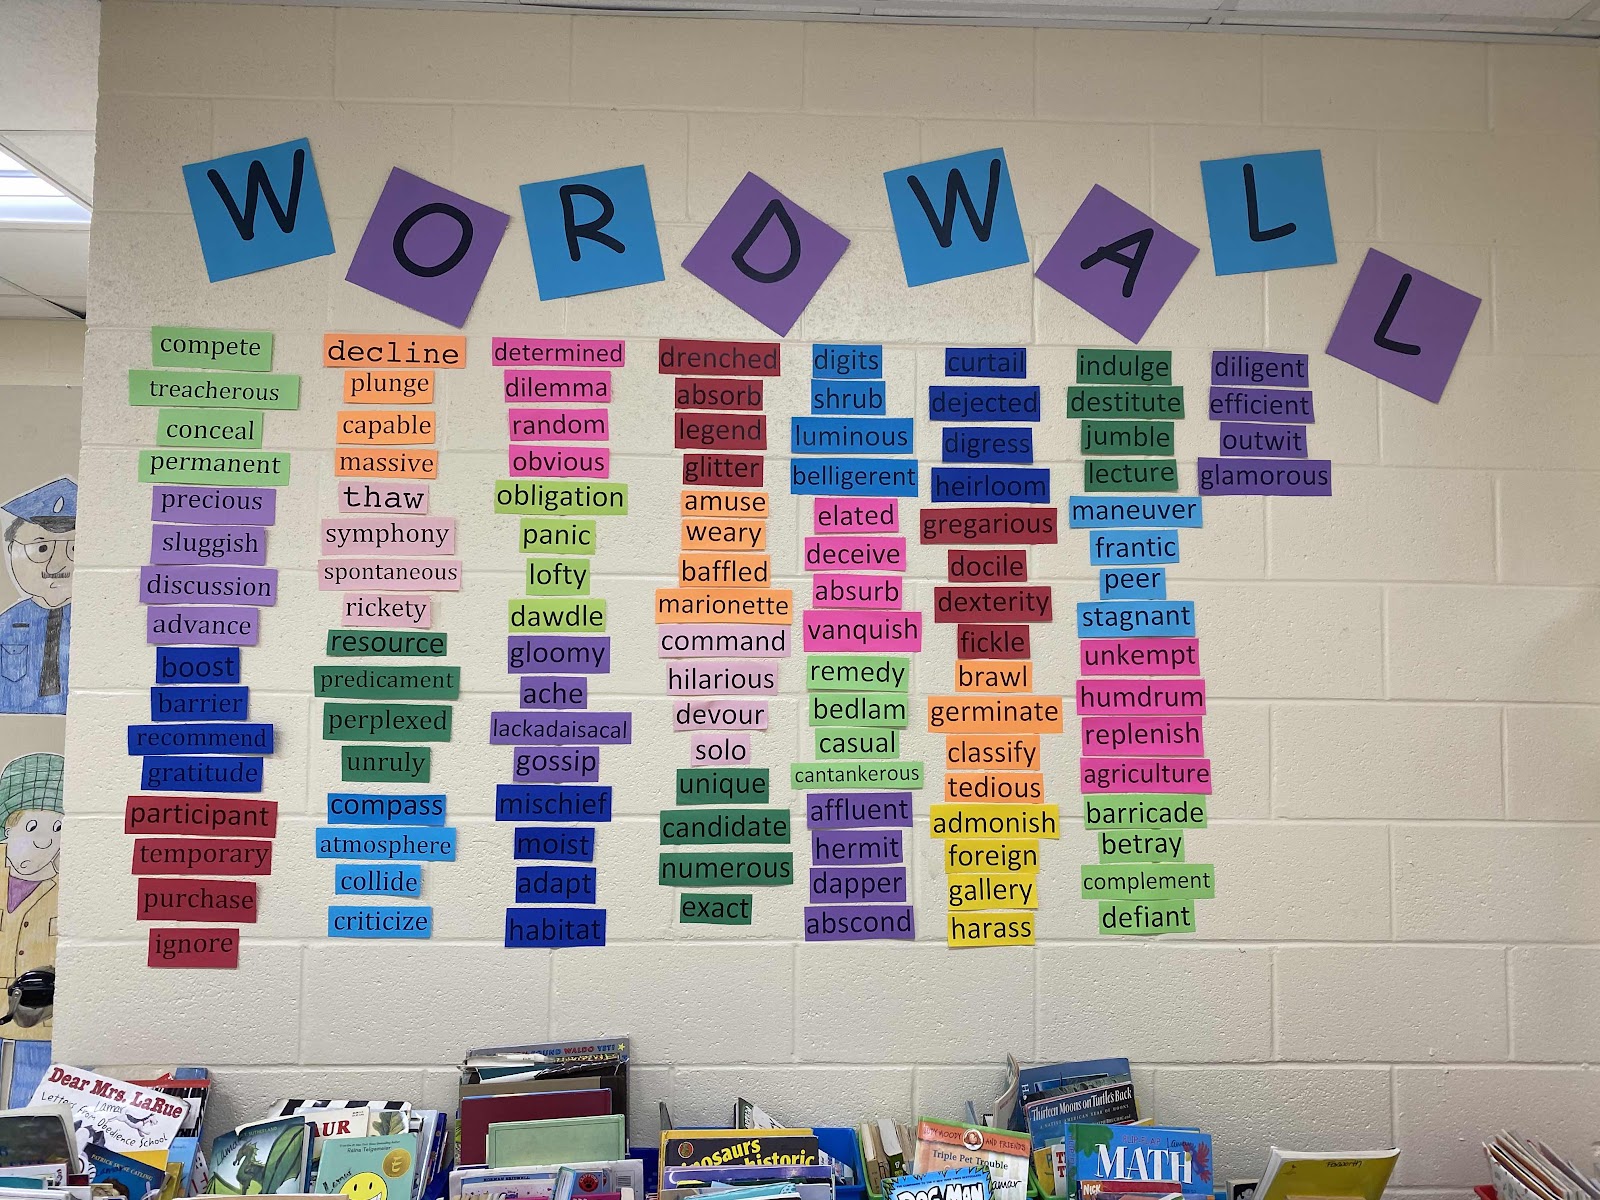 WORD WALL
compete
treacherous
conceal
permanent
precious
sluggish
discussion
advance
boost
barrier
recommend
gratitude
participant
temporary
purchase
ignore
decline
plunge
capable
massive
thaw
symphony
spontaneous
rickety
resource
predicament
perplexed
unruly
compass
atmosphere
collide
criticize
determined
dilemma
random
obvious
obligation
panic
lofty
dawdle
gloomy
ache
lackadaisacal
gossip
mischief
moist
adapt
habitat
drenched
absorb
legend
glitter
amuse
weary
baffled
marionette
command
hilarious
devour
solo
unique
candidate
numerous
exact
digits
shrub
luminous
belligerent
elated
deceive
absurb
vanquish
remedy
bedlam
casual
cantankerous
affluent
hermit
dapper
abscond
curtail
dejected
digress
heirloom
gregarious
docile
dexterity
fickle
brawl
germinate
classify
tedious
admonish
foreign
gallery
harass
indulge
destitute
jumble
lecture
maneuver
frantic
peer
stagnant
unkempt
humdrum
replenish
agriculture
barricade
betray
complement
defiant
diligent
efficient
outwit
glamorous
Dear Mrs. LaRue
Letters from Obedience School
Lamar
WALDO YET?
Raina Telgemeier
dinosaurs
JUDY MOODY AND FRIENDS
Triple Pet Trouble
DOG MAN
Thirteen Moons on Turtle's Back
MATH